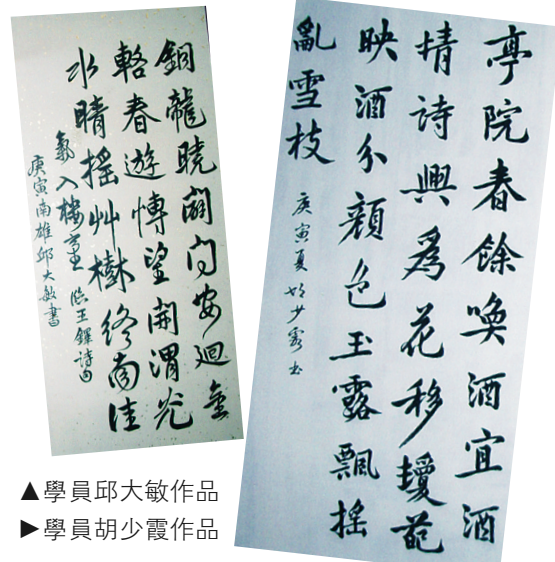 銅龍曉闢問安迴金
輅春遊博望開渭光
水晴搖艸樹終南佳
氣入樓臺 臨王鐸詩句
庚寅南雄邱大敏書
亭院春餘喚酒宜酒
情詩興爲花移瓊葩
映酒分顏色玉露飄搖
亂雪枝
庚寅夏胡少霞书
▲學員邱大敏作品
▶學員胡少霞作品